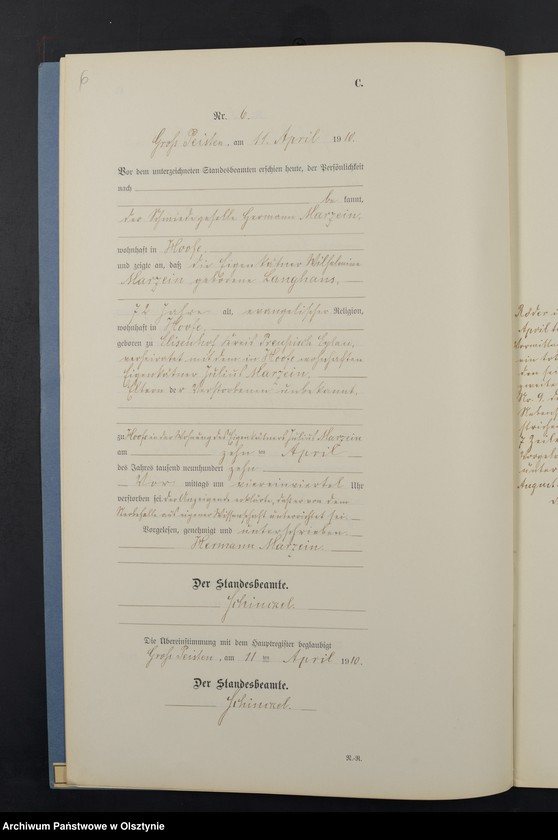 6
C.
Nr. 6.
Groß Peisten, am 11. April 1910.
Vor dem unterzeichneten Standesbeamten erschien heute, der Persönlichkeit
nach
be kannt,
der Schmiedegeselle Hermann Marzein,
wohnhaft in Hoofe,
und zeigte an, daß die Eigenkätner Wilhelmine
Marzein geborene Langhans,
72 Jahre alt, evangelischer Religion,
wohnhaft in Hoofe,
geboren zu Kreis Preußisch Eylau,
verheiratet mit dem in Hoofe wohnhaften
Eigenkätner Julius Marzein,
Eltern der Verstorbenen unbekannt,
zu Hoofe in der Wohnung des Eigenkätners Julius Marzein
am zehn ten April
des Jahres tausend neunhundert zehn
Vor mittags um viereinviertel Uhr
verstorben sei. Der Anzeigende erklärte, daß er von dem
Sterbefalle aus eigener Wissenschaft unterrichtet sei.
Vorgelesen, genehmigt und unterschrieben
Hermann Marzein
Der Standesbeamte.
Die Übereinstimmung mit dem Hauptregister beglaubigt
Groß Peisten, am 11 ten April 1910.
Der Standesbeamte.
N.-R.
April
August
Archiwum Państwowe w Olsztynie